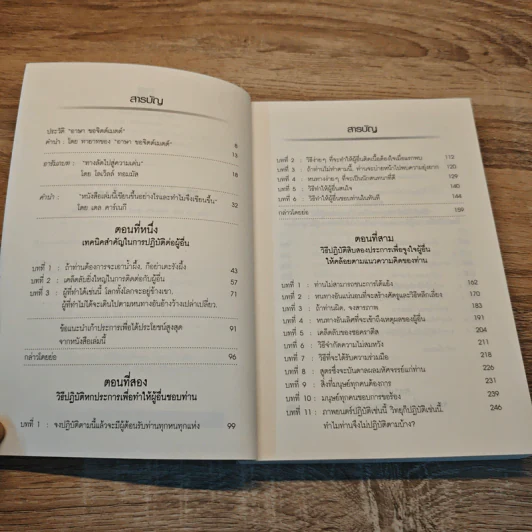 สารบัญ
ประวัติ "อาษา ขอจิตต์เมตต์"
คำนำ : โดย ทายาทของ "อาษา ขอจิตต์เมตต์" 6
13
อารัมภบท : "ทางลัดไปสู่ความเด่น"
โดย โลเวิลล์ ทอมมัส
คำนำ : "หนังสือเล่มนี้เขียนขึ้นอย่างไรและทำไมจึงเขียนขึ้น" 32
โดย เดล คาร์เนกี
ตอนที่หนึ่ง
เทคนิคสำคัญในการปฏิบัติต่อผู้อื่น
บทที่ 1 : ถ้าท่านต้องการจะเอาน้ำผึ้ง, ก็อย่าเตะรังผึ้ง 43
บทที่ 2 : เคล็ดลับยิ่งใหญ่ในการติดต่อกับผู้อื่น 57
บทที่ 3 : ผู้ที่ทำได้เช่นนี้ โลกทั้งโลกจะอยู่ข้างเขา, 71
ผู้ที่ทำไม่ได้จะเดินไปตามหนทางอันอ้างว้างเปล่าเปลี่ยว.
ข้อแนะนำเก้าประการเพื่อได้ประโยชน์สูงสุด 91
จากหนังสือเล่มนี้
กล่าวโดยย่อ 96
ตอนที่สอง
วิธีปฏิบัติหกประการเพื่อทำให้ผู้อื่นชอบท่าน
บทที่ 1 : จงปฏิบัติตามนี้แล้วจะมีผู้ต้อนรับท่านทุกหนทุกแห่ง 99
สารบัญ
บทที่ 2 : วิธีง่ายๆ ที่จะทำให้ผู้อื่นติดเนื้อต้องใจเมื่อแรกพบ 112
บทที่ 3 : ถ้าท่านไม่ทำตามนี้, ท่านจะบ่ายหน้าไปพบความยุ่งยาก 120
บทที่ 4 : หนทางง่ายๆ ที่จะเป็นนักสนทนาที่ดี 129
บทที่ 5 : วิธีทำให้ผู้อื่นสนใจ 140
บทที่ 6 : วิธีทำให้ผู้อื่นชอบท่านในทันที 144
กล่าวโดยย่อ 159
ตอนที่สาม
วิธีปฏิบัติสิบสองประการเพื่อจูงใจผู้อื่น
ให้คล้อยตามแนวความคิดของท่าน
บทที่ 1 : ท่านไม่สามารถชนะการโต้แย้ง 162
บทที่ 2 : หนทางอันแน่นอนที่จะสร้างศัตรูและวิธีหลีกเลี่ยง 170
บทที่ 3 : ถ้าท่านผิด, จงสารภาพ 183
บทที่ 4 : หนทางอันเลิศที่จะเข้าถึงเหตุผลของผู้อื่น 191
บทที่ 5 : เคล็ดลับของซอคราตีส 204
บทที่ 6 : วิธีกำจัดความไม่สมหวัง 211
บทที่ 7 : วิธีที่จะได้รับความร่วมมือ 218
บทที่ 8 : สูตรซึ่งจะบันดาลผลมหัศจรรย์แก่ท่าน 226
บทที่ 9 : สิ่งที่มนุษย์ทุกคนต้องการ 231
บทที่ 10 : มนุษย์ทุกคนชอบการขอร้อง 239
บทที่ 11 : ภาพยนตร์ปฏิบัติเช่นนี้ วิทยุก็ปฏิบัติเช่นนี้. 246
ทำไมท่านจึงไม่ปฏิบัติตามบ้าง?